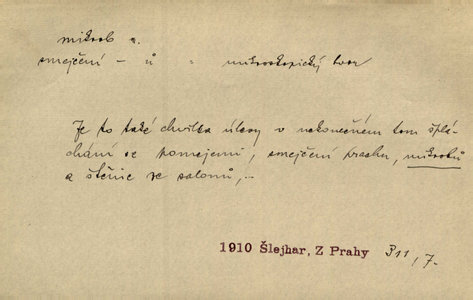 mikrob m.
smejčení - ů " mikroskopický tvor
Je to také chvilka úlevy v nekonečném tom šplí-
chání se pomejemi, smejčení prachu, mikrobů
a štěnic ze salonů,...
1910 Šlejhar, Z Prahy 311, 7.